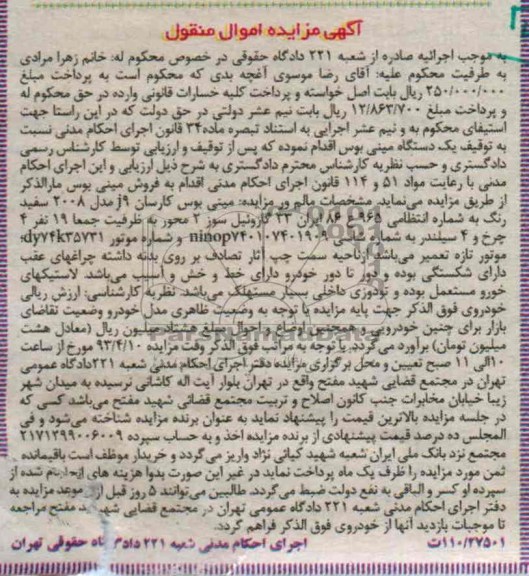 آگهی مزایده اموال منقول
به موجب اجرائیه صادره از شعبه ۲۲۱ دادگاه حقوقی در خصوص محکوم له: خانم زهرا مرادی
به طرفیت محکوم علیه: آقای رضا موسوی آغچه بدی که محکوم است به پرداخت مبلغ
۲۵۰/۰۰۰/۰۰۰ ریال بابت اصل خواسته و پرداخت کلیه خسارات قانونی وارده در حق محکوم له
و پرداخت مبلغ ۱۲/۸۶۳/۷۰۰ ریال بابت نیم عشر دولتی در حق دولت که در این راستا جهت
استیفای محکوم به و نیم عشر اجرایی به استناد تبصره ماده۳۴ قانون اجرای احکام مدنی نسبت
به توقیف یک دستگاه مینی بوس اقدام نموده که پس از توقیف و ارزیابی توسط کارشناس رسمی
دادگستری و حسب نظریه کارشناس محترم دادگستری به شرح ذیل ارزیابی و این اجرای احکام
مدنی با رعایت مواد ۵۱ و ۱۱۴ قانون اجرای احکام مدنی اقدام به فروش مینی بوس مارالذکر
از طریق مزایده می‌نماید. مشخصات مالم ور مزایده: مینی بوس کارسان j۹ مدل ۲۰۰۸ سفید
رنگ به شماره انتظامی ۸۶۵ع ۸۶ ایران ۲۳ گازوئیل سوز ۲ محور به ظرفیت جمعا ۱۹ نفر ۴
چرخ و ۴ سیلندر به شماره شاسی و شماره موتور dy۷۴k۳۵۷۳۱؛
موتور تازه تعمیر می‌باشد از ناحیه سمت چپ آثار تصادف بر روی بدنه داشته چراغهای عقب
دارای شکستگی بوده و دور تا دور خودرو دارای خط و خش و آسیب می‌باشد. لاستیکهای
خورو مستعمل بوده و تودوزی داخلی بسیار مستهلک می‌باشد. نظریه کارشناسی: ارزش ریالی
خودروی فوق الذکر جهت پایه مزایده با توجه به وضعیت ظاهری مدل خودرو وضعیت تقاضای
بازار برای چنین خودرویی و همچنین اوضاع و احوال مبلغ هشتاد میلیون ریال (معادل هشت
میلیون تومان) برآورد می‌گردد. با توجه به مراتب فوق الذکر وقت مزایده ۹۳/۴/۱۰ مورخ از ساعت
۱۰الی ۱۱ صبح تعیین و محل برگزاری مزایده دفتر اجرای احکام مدنی شعبه ۲۲۱دادگاه عمومی
تهران در مجتمع قضایی شهید مفتح واقع در تهران بلوار آیت اله کاشانی نرسیده به میدان شهر
زیبا خیابان مخابرات جنب کانون اصلاح و تربیت مجتمع قضائی شهید مفتح باشد کسی که
در جلسه مزایده بالاترین قیمت را پیشنهاد نماید به عنوان برنده مزایده شناخته می‌شود و فی
المجلس ده درصد قیمت پیشنهادی از برنده مزایده اخذ و به حساب سپرده ۲۱۷۱۲۹۹۰۰۶۰۰۹
مجتمع نزد بانک ملی ایران شعبه شهید کیانی نژاد واریز می‌گردد و خریدار موظف است باقیمانده
ثمن مورد مزایده را ظرف یک ماه پرداخت نماید در غیر این صورت بدوا هزینه های انجام شده از
سپرده او کسر و الباقی به نفع دولت ضبط می‌گردد. طالبین می‌توانند ۵ روز قبل از موعد مزایده به
دفتر اجرای احکام مدنی شعبه ۲۲۱ دادگاه عمومی تهران در مجتمع قضایی شهید مفتح مراجعه
تا موجبات بازدید آنها از خودروی فوق الذکر فراهم گردد.
۱۱۰/۲۷۵۰۱ت اجرای احکام مدنی شعبه ۲۲۱ دادگاه حقوقی تهران